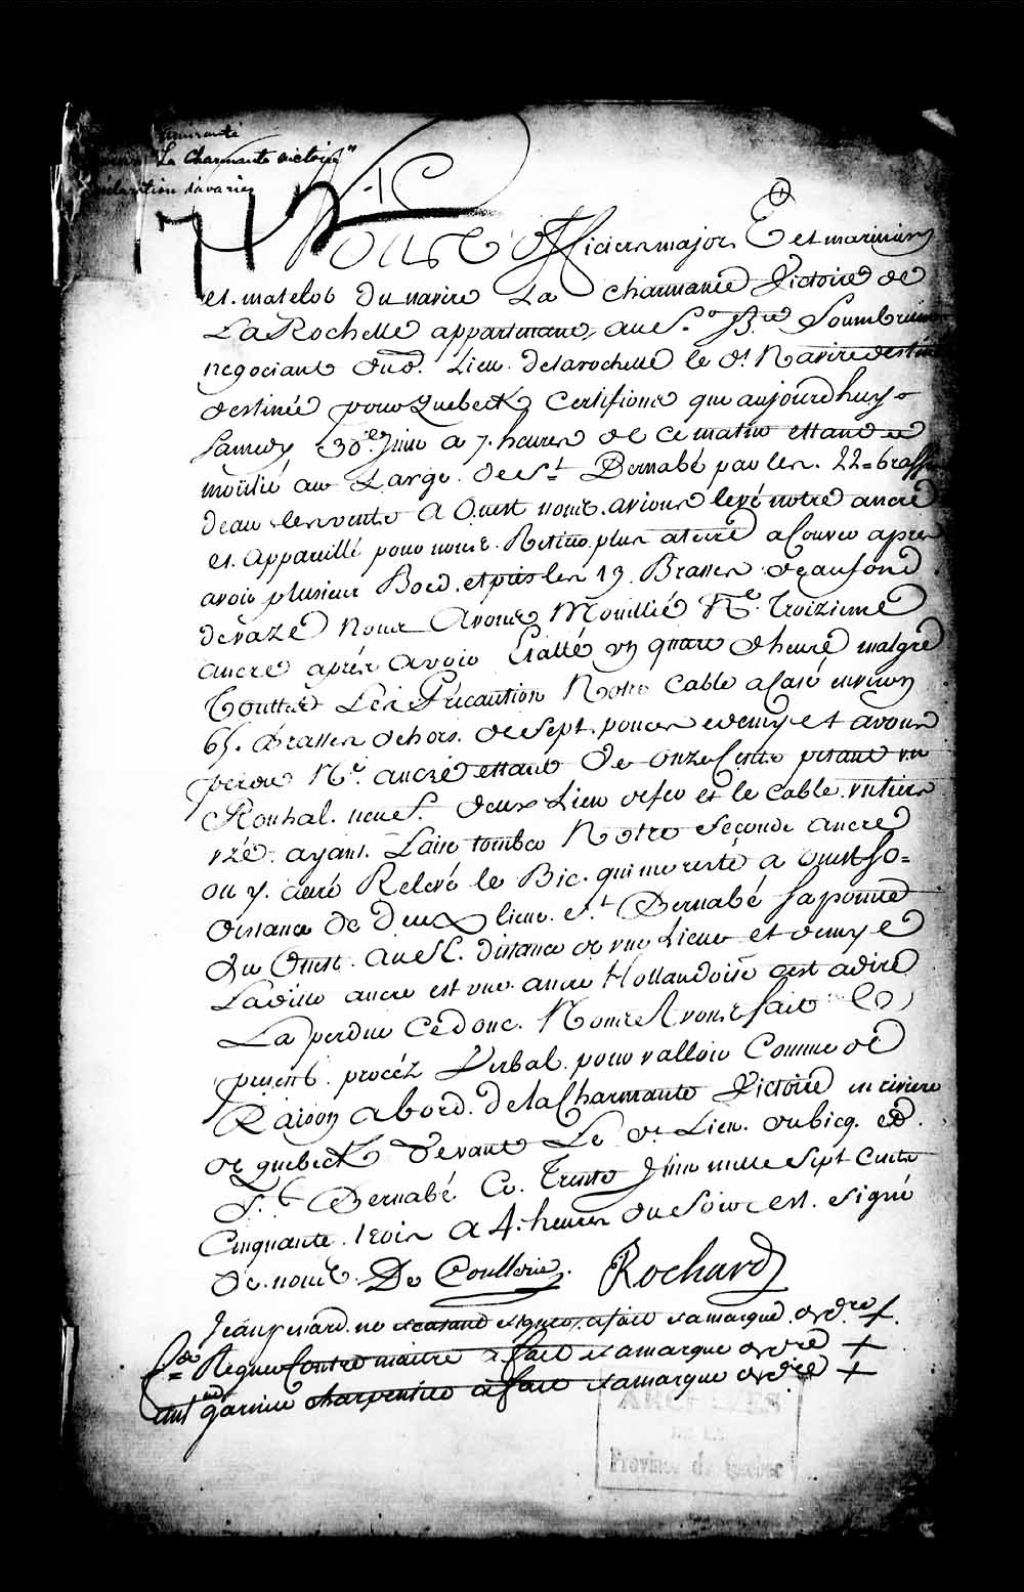 amirauté
"La Charmante Victoire"
déclaration d'avaries
742
Nous Officiers majors Et et mariniers
et matelos du navire La Charmante Victoire de
La Rochelle appartenant au Sr. Soumbrun
negociant dud. Lieu de la rochelle le dt. Navire destiné
destinée pour Quebeck Certifions que aujourdhuy
Samedy 30e. Juin a 7. heures de ce matin ettant
moüilié au Large de St. Bernabé par les 22= brasses
deau les vents a Ouest nous avions levé notre ancre
et appareillé pour nous plus aterre apres
avoir plusieurs Bord et pris les 19. Brasses deau fond
devaze Nous Avons Mouillié Ne. Troizieme
ancre aprés avoir un quart dheure malgré
Touttes Les Précaution Notre Cable a Casé environ
65. Brasses dehors de sept pouces edemy et avons
perdu Ne. ancre ettant de Onze Cents pesant un
neuf. deux Lieu et le Cable
uzé. ayant Laise tomber Notre Seconde ancre
on y. Relevé le Bic. qui me reste a Ouest So=
distance de Deux lieue et St. Bernabé sa pointe
du Ouest au SE. distance de une Lieue et demye
Laditte ancre est une ancre Hollandoise cest adire
La perdue Cedonc. Nous Avons fait Le
present procéz Verbal pour valloir Comme de
Raison abord de la Charmante Victoire en riviere
de quebeck devant Le dt. Lieu du bicq. et
St. Bernabé Ce Trente Juin mille Sept Cents
Cinquante trois a 4. heures du Soir et signé
de nous. De Coutterie. Rochard
Jean ne sachant signer a fait sa marque ordre +
Contre maitre a fait sa marque ordre +
garnier charpentier a fait sa marque ordre +
ARCHIVES
DE LA
Province de Québec